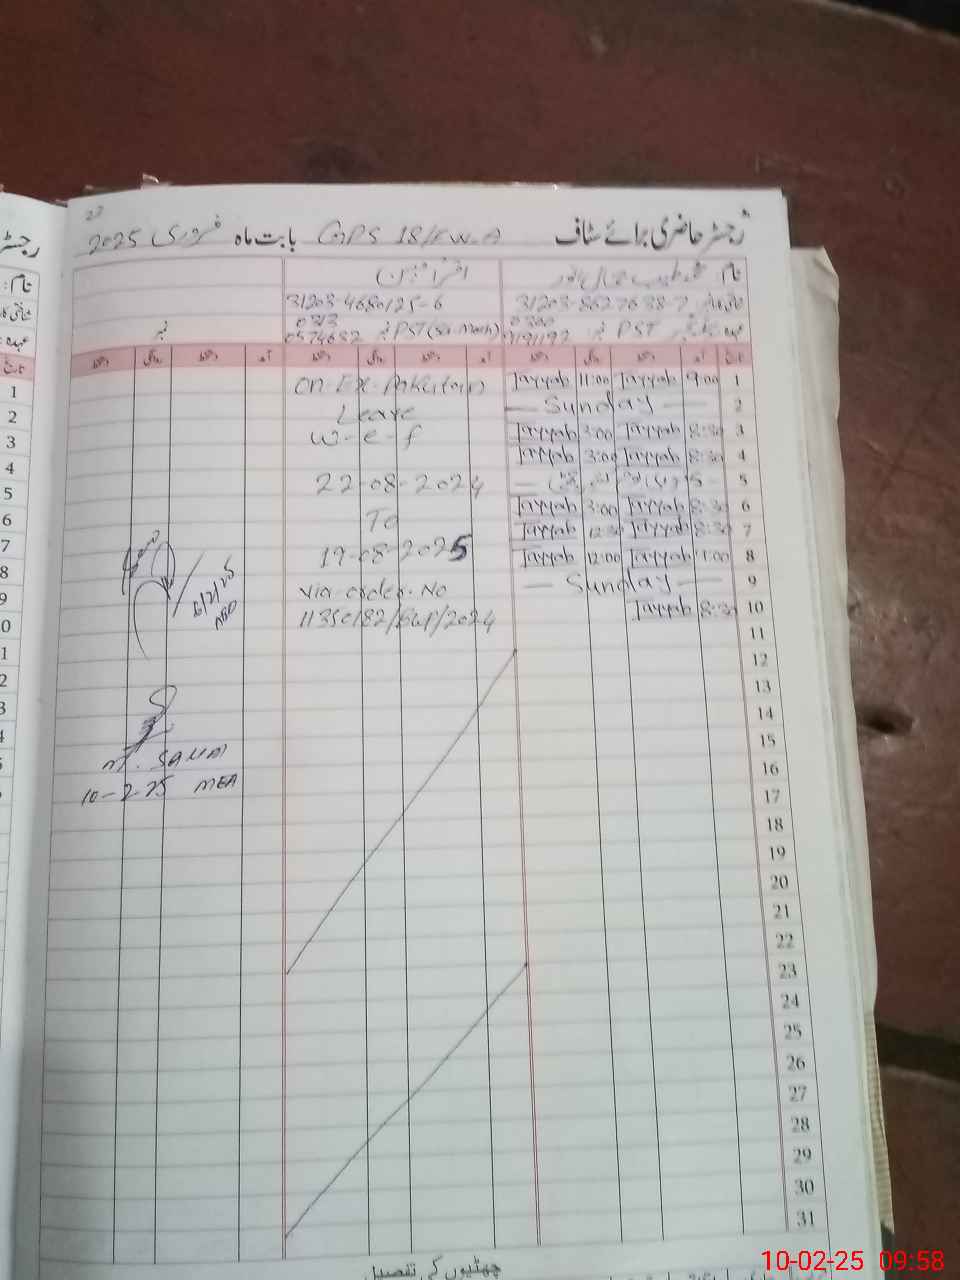 27
رجسٹر حاضری برائے سٹاف GPS 18/F.W.A بابت ماہ فروری 2025
نام: محمد طیب جمال اقراء
31203-8627638-7 31203-4680125-6
عہدہ PST نمبر 0300 PST نمبر 0313 نمبر
9191192 0574632
تاریخ آمد دستخط روانگی دستخط آمد دستخط روانگی دستخط آمد دستخط روانگی دستخط
1 9:00 Tayyab 11:00 Tayyab On Ex-Pakistan
2 — Sunday — Leave
3 8:30 Tayyab 3:00 Tayyab w-e-f
4 8:30 Tayyab 3:00 Tayyab
5 22-08-2024
6 8:30 Tayyab 3:00 Tayyab To
7 8:30 Tayyab 12:30 Tayyab
8 9:00 Tayyab 12:00 Tayyab 19-08-2025
9 — Sunday — via order. No
10 8:30 Tayyab 11350182/EWP/2024
6/2/25
11
12
13
14
15
16
17
10-2-25 MEA
18
19
20
21
22
23
24
25
26
27
28
29
30
31
چھٹیوں کی تفصیل
رجسٹر
نام:
عہدہ:
تاریخ
1
2
3
4
5
6
7
8
9
10-02-25 09:58